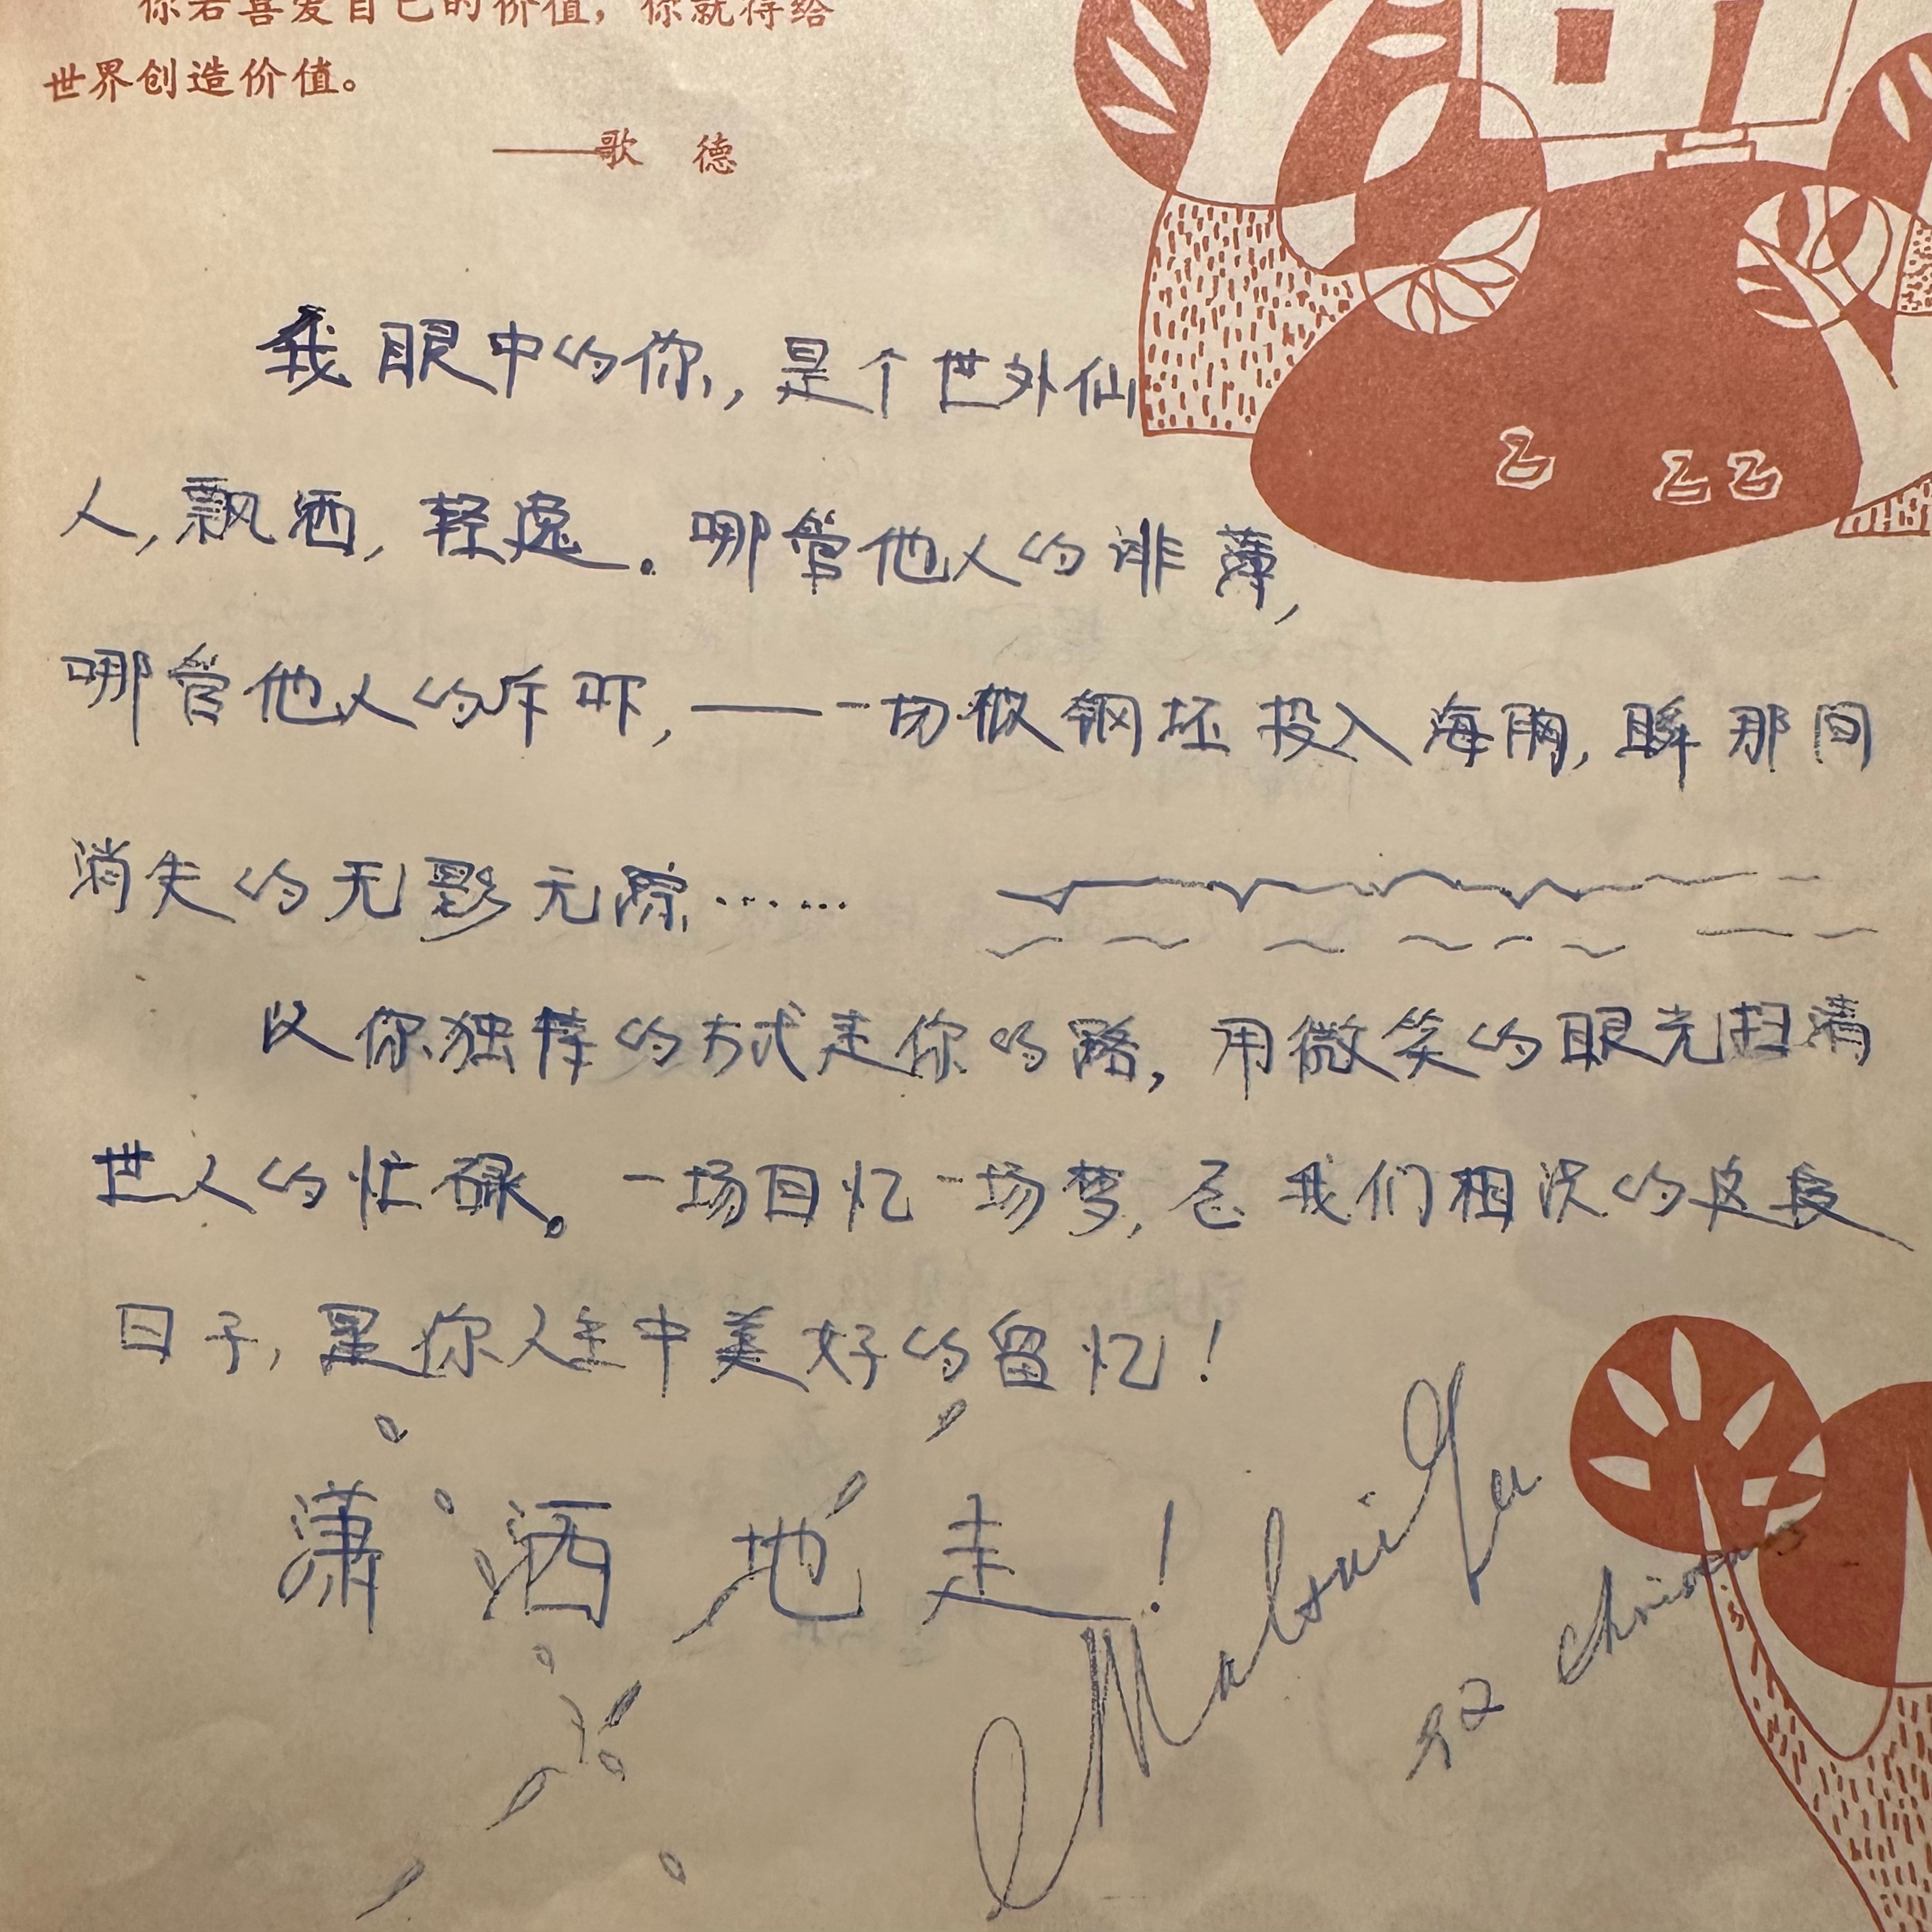 你若喜爱自己的价值，你就得给
世界创造价值。
——歌 德
我眼中的你，是个世外仙
人，飘洒，轻逸。哪管他人的诽薄，
哪管他人的斥吓，——一切被钢坯投入海胸，瞬那间
消失的无影无踪……
以你独特的方式走你的路，用微笑的眼光扫清
世人的忙碌。一场回忆一场梦，忘我们相识的这段
日子，是你人生中美好的留忆！
潇洒地走！
92